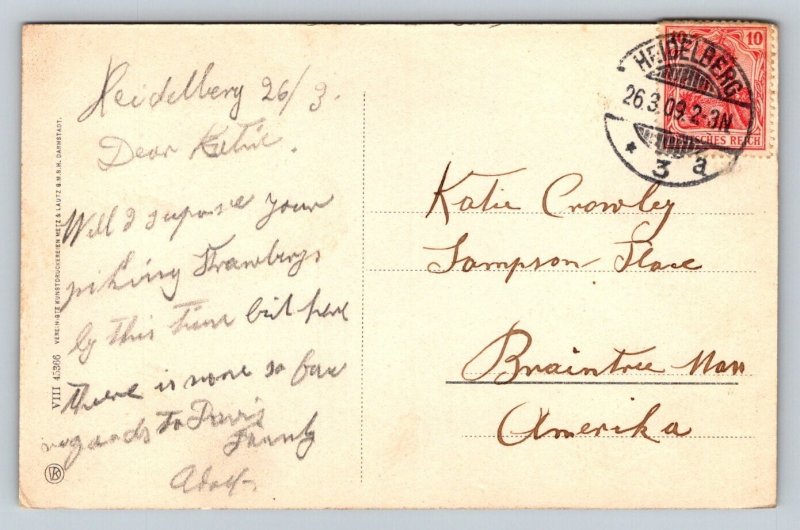 Heidelberg 26/3.
Dear Katie.
Well I supose your
piking Strawberys
by this time but here
there is none so far
regards to Davis
Family
Adolf.
VIII 45366 VEREINIGTE KUNSTDRUCKEREIEN METZ & LAUTZ G.M.B.H. DARMSTADT.
10
DEUTSCHES REICH
HEIDELBERG
26.3.09.2-3N.
* 3 a
Katie Crowley
Sampson Place
Braintree Mass
Amerika